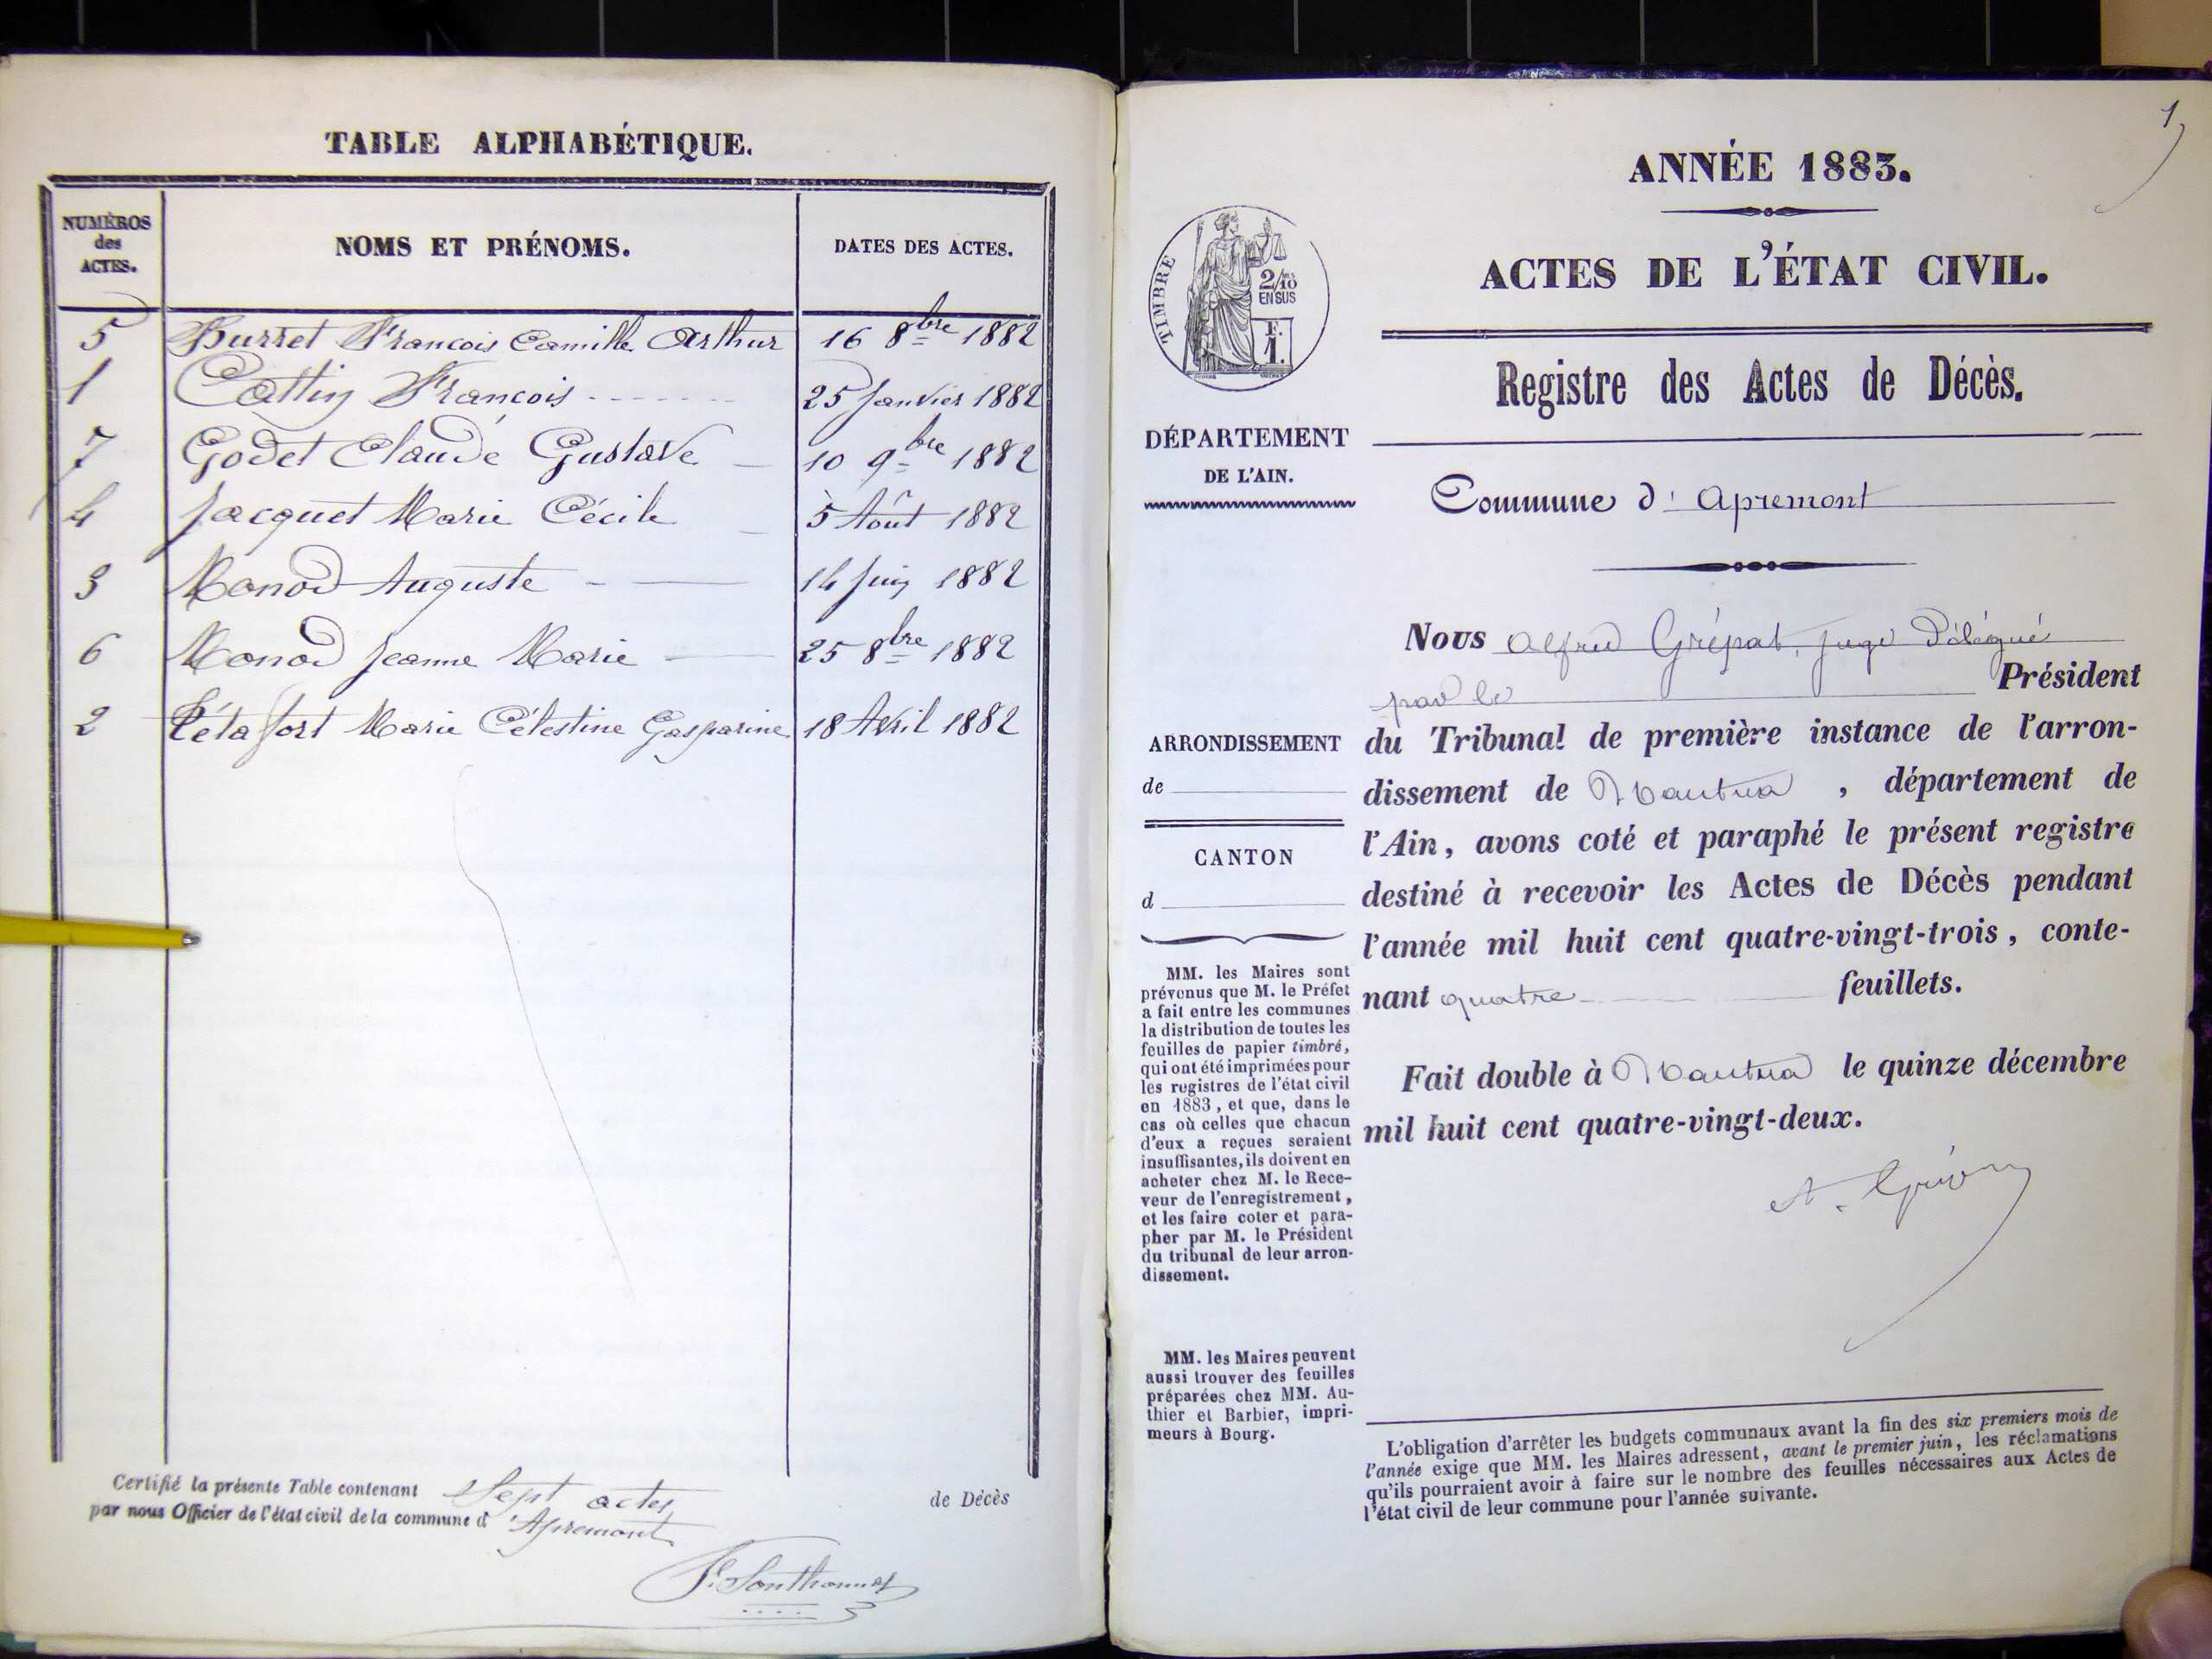 TABLE ALPHABÉTIQUE.
NUMÉROS des ACTES.
NOMS ET PRÉNOMS.
DATES DES ACTES.
5 Burret François Camille Arthur 16 8bre 1882
1 Cattin François 25 Janvier 1882
7 Godet Claude Gustave 10 9bre 1882
4 Jacquet Marie Cécile 5 Août 1882
3 Monod Auguste 14 Juin 1882
6 Monod Jeanne Marie 25 8bre 1882
2 Pétafort Marie Célestine Gasparine 18 Avril 1882
Certifié la présente Table contenant Sept actes de Décès
par nous Officier de l'état civil de la commune d'Apremont
1
ANNÉE 1883.
ACTES DE L'ÉTAT CIVIL.
TIMBRE
2/10
EN SUS
F.
1.
Registre des Actes de Décès.
DÉPARTEMENT
DE L'AIN.
Commune d'Apremont
Nous Alfred Grépat, juge délégué
par le Président
du Tribunal de première instance de l'arron-
dissement de Nantua, département de
l'Ain, avons coté et paraphé le présent registre
destiné à recevoir les Actes de Décès pendant
l'année mil huit cent quatre-vingt-trois, conte-
nant quatre feuillets.
Fait double à Nantua le quinze décembre
mil huit cent quatre-vingt-deux.
ARRONDISSEMENT
de
CANTON
d
MM. les Maires sont
prévenus que M. le Préfet
a fait entre les communes
la distribution de toutes les
feuilles de papier timbré,
qui ont été imprimées pour
les registres de l'état civil
en 1883, et que, dans le
cas où celles que chacun
d'eux a reçues seraient
insuffisantes, ils doivent en
acheter chez M. le Rece-
veur de l'enregistrement,
et les faire coter et para-
pher par M. le Président
du tribunal de leur arron-
dissement.
MM. les Maires peuvent
aussi trouver des feuilles
préparées chez MM. Au-
thier et Barbier, impri-
meurs à Bourg.
L'obligation d'arrêter les budgets communaux avant la fin des six premiers mois de
l'année exige que MM. les Maires adressent, avant le premier juin, les réclamations
qu'ils pourraient avoir à faire sur le nombre des feuilles nécessaires aux Actes de
l'état civil de leur commune pour l'année suivante.